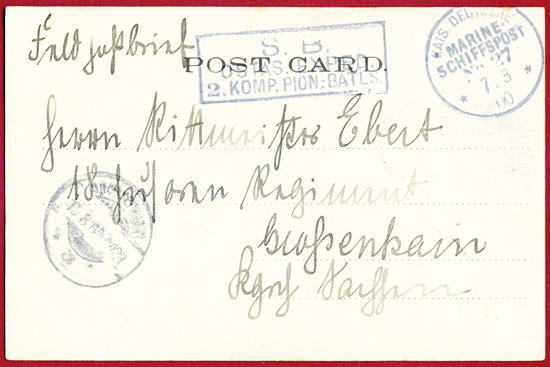 Feldpostbrief
S. B.
OSTAS. EXPED.
POST CARD.
2. KOMP. PION.-BATLS.
KAIS. DEUTSCHE
MARINE-
SCHIFFSPOST
No 27
7.8
00
Herrn Rittmeister Ebert
18 Husaren Regiment
Grossenhain
Kgrch Sachsen